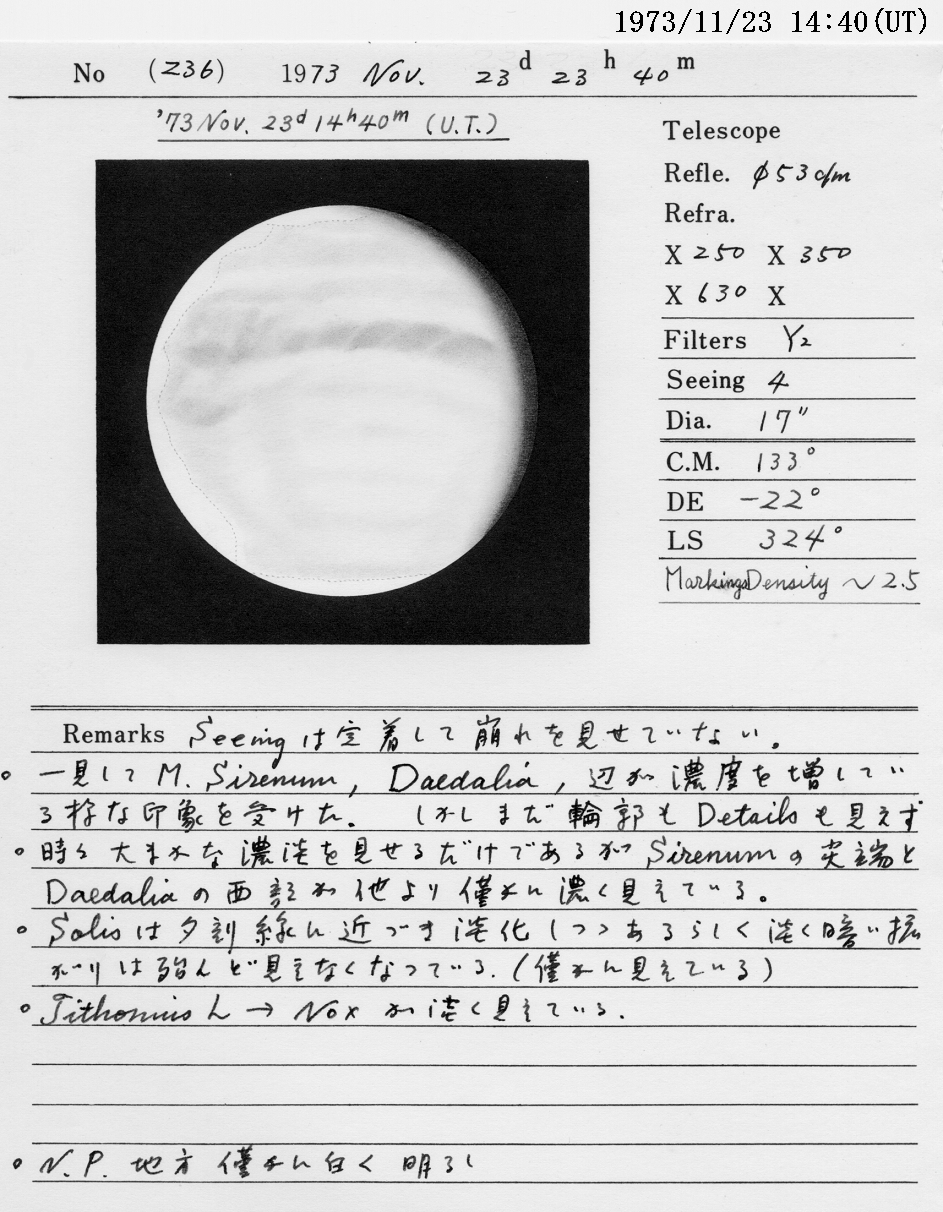 1973/11/23 14:40(UT)
No (236) 1973 Nov. 23d 23h 40m
'73 Nov. 23d 14h40m (U.T.)
Telescope
Refle. φ53c/m
Refra.
X 250 X 350
X 630 X
Filters Y2
Seeing 4
Dia. 17"
C.M. 133°
DE -22°
LS 324°
Markings Density ~2.5
Remarks Seeingは定着して崩れを見せていない。
一見して M. Sirenum, Daedalia, 辺が濃度を増してい
る様な印象を受けた. しかしまだ輪郭もDetailsも見えず
時々大まかな濃淡を見せるだけであるがSirenumの尖端と
Daedaliaの西部が他より僅かに濃く見えている。
Solisは夕刻線に近づき淡化しつつあるらしく淡く暗い拡
がりは殆んど見えなくなっている.(僅かに見えている)
Tithonius L → Nox が淡く見えている.
N.P. 地方僅かに白く明るし